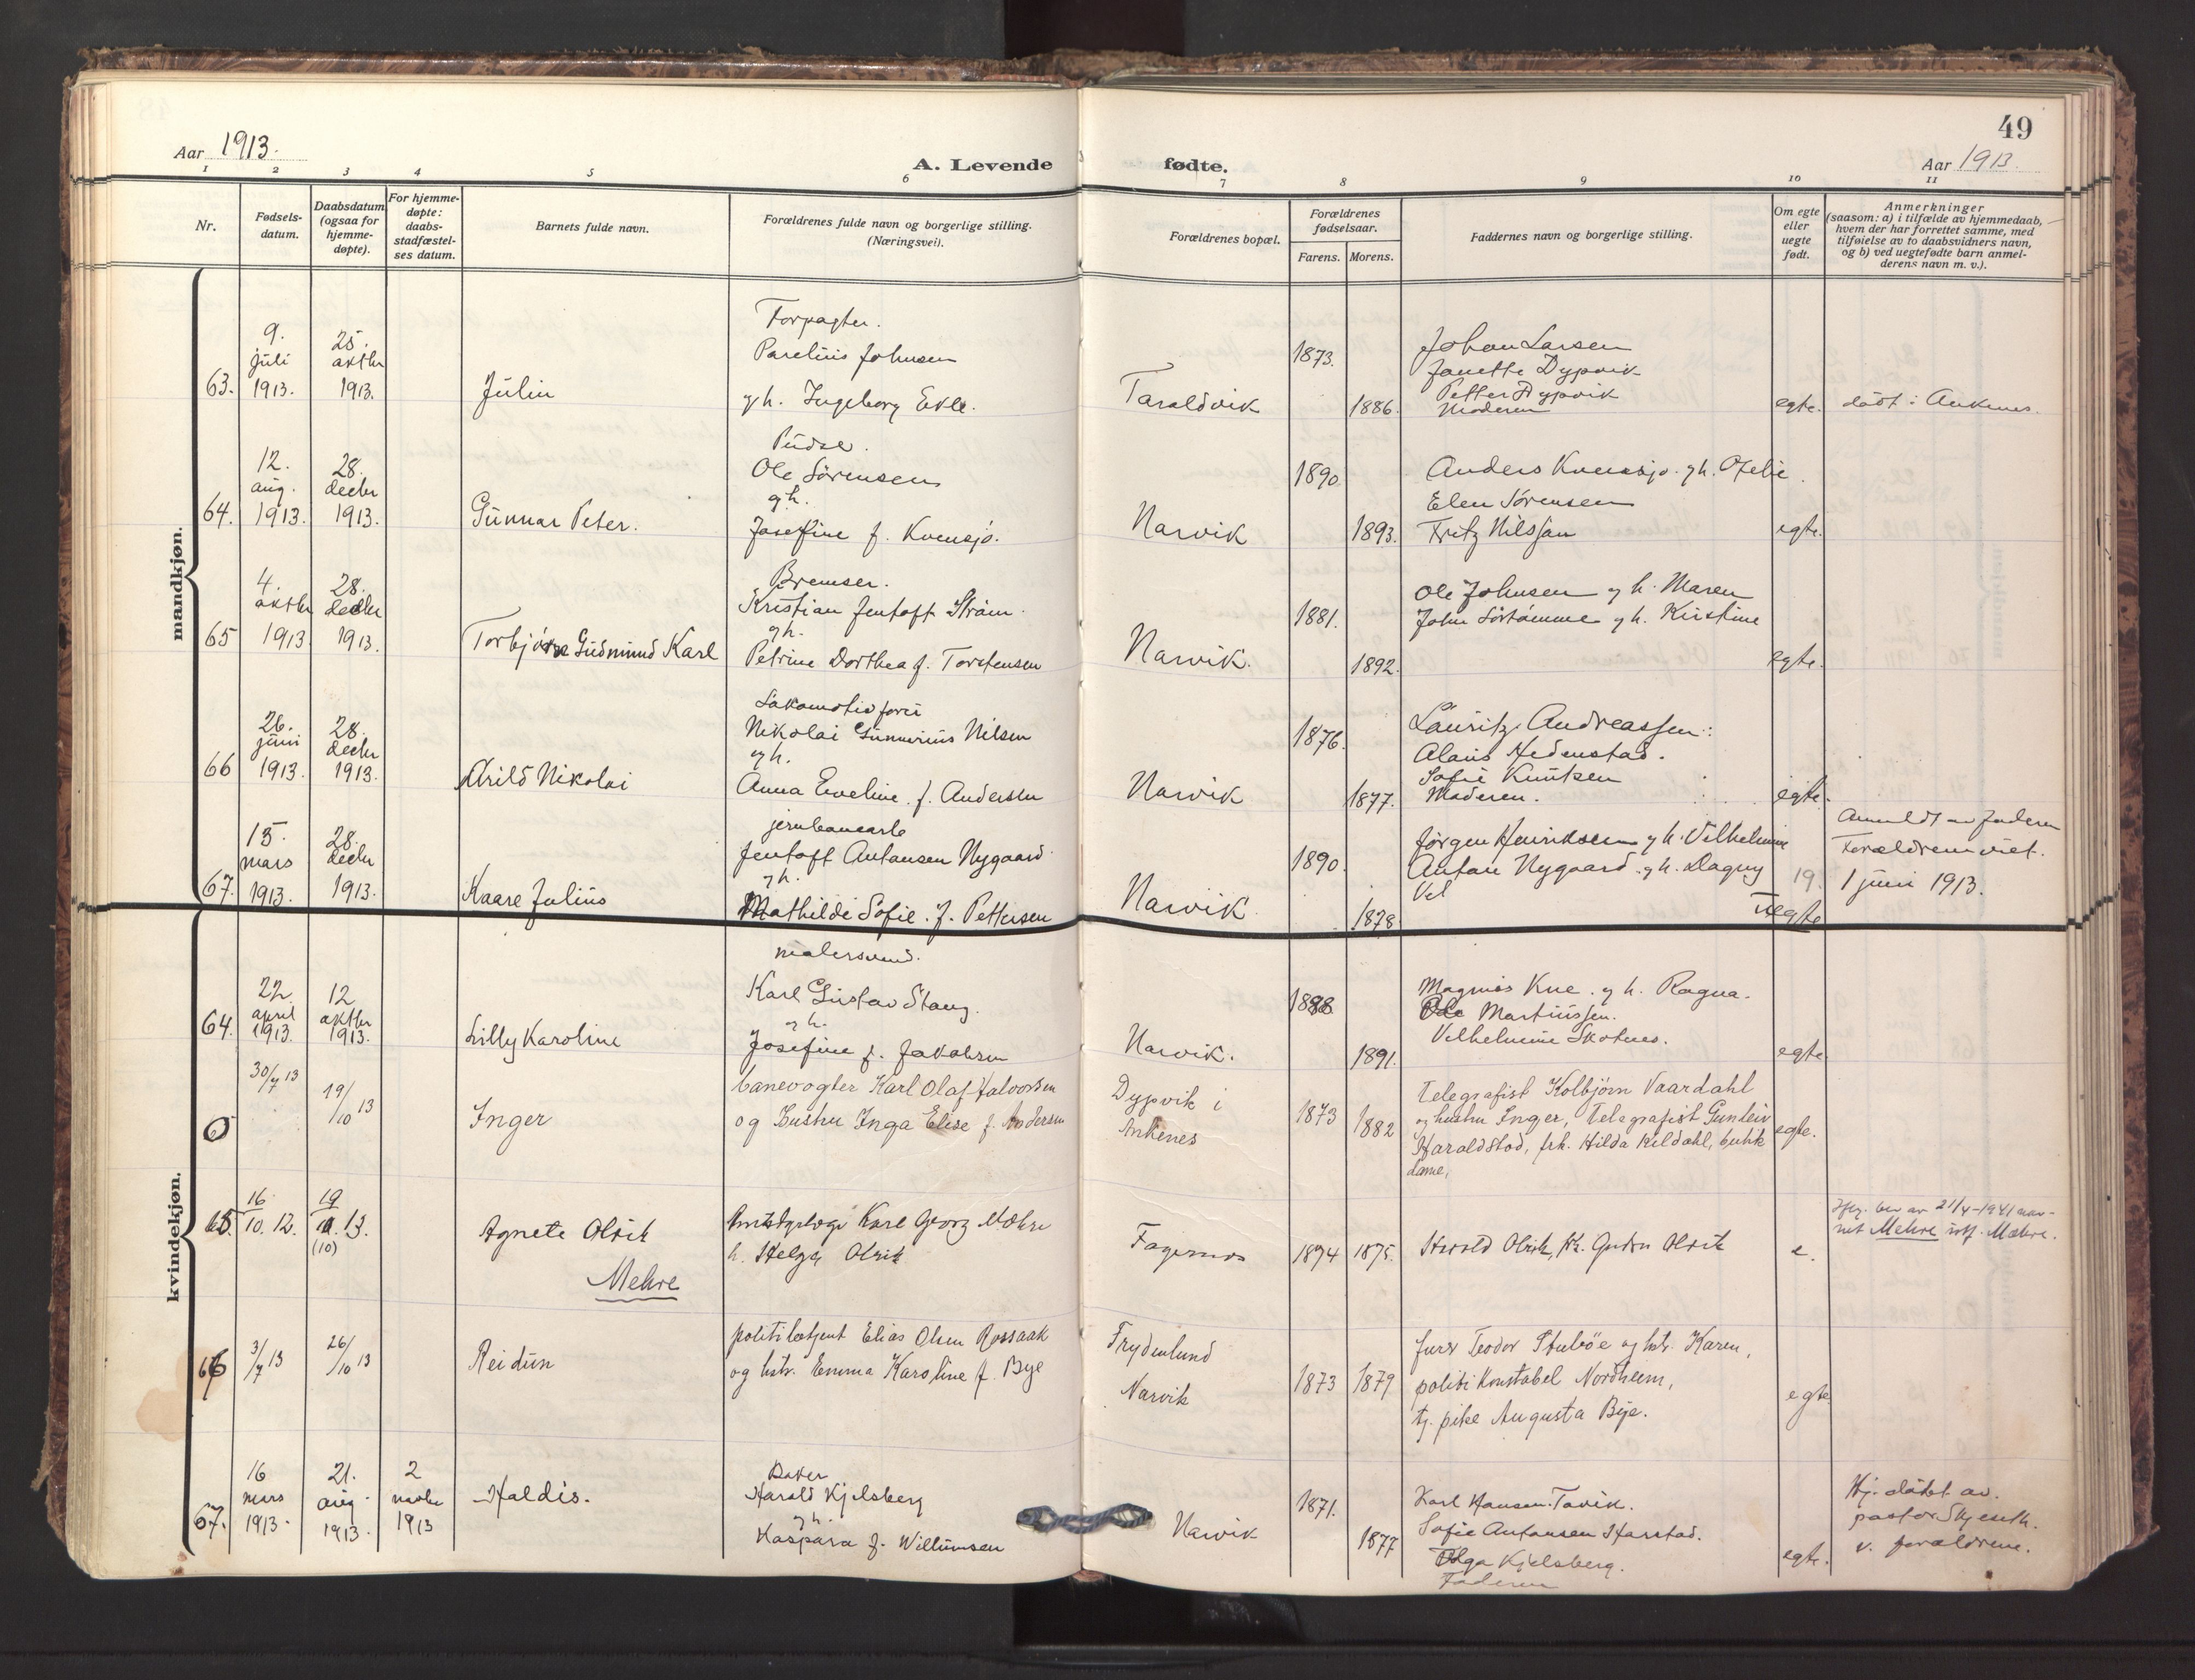 49
Aar 1913.
A. Levende fødte.
Aar 1913.
1 2 3 4 5 6 7 8 9 10 11
Nr.
Fødsels-
datum.
Daabsdatum
(ogsaa for
hjemme-
døpte).
For hjemme-
døpte:
daabs-
stadfæstel-
ses datum.
Barnets fulde navn.
Forældrenes fulde navn og borgerlige stilling.
(Næringsvei).
Forældrenes bopæl.
Forældrenes
fødselsaar.
Farens. Morens.
Faddernes navn og borgerlige stilling.
Om egte
eller
uegte
født.
Anmerkninger
(saasom: a) i tilfælde av hjemmedaab,
hvem der har forrettet samme, med
tilføielse av to daabsvidners navn,
og b) ved uegtefødte barn anmel-
derens navn m. v.).
mandkjøn.
63.
9.
juli
1913.
25.
oktbr
1913.
Julin
Forpagter.
Parelius Johnsen
gh. Ingeborg
Taraldvik
1873.
1886.
Johan Larsen
Janette Dypvik
Petter Dypvik
Moderen
egte.
døbt i Ankenes.
64.
12.
aug.
1913.
28.
decbr
1913.
Gunnar Peter.
Pudse.
Ole Sörensen
gh.
Josefine f. Kvensjö.
Narvik
1890
1893.
Anders Kvensjo. gh. Ofelie.
Elen Sörensen
Fritz Nilssen
egte.
65
4.
oktbr
1913
28.
decbr
1913.
Torbjörn Gudmund Karl
Bremser.
Kristian Jentoft Ström.
gh.
Petrine Dorthea f. Torstensen
Narvik.
1881.
1892.
Ole Johnsen gh. Maren
John Sörtömme gh. Kristine
egte.
66
26.
juni
1913.
28.
decbr
1913.
Arild Nikolai
Lokomotivförer
Nikolai Gunnerius Nilsen
gh.
Anna Eveline. f. Andersen
Narvik
1876.
1877.
Lauritz Andreassen:
Alaus Hedenstad.
Sofie Knutsen
Moderen.
egte.
67.
15.
mars
1913.
28.
decbr
1913.
Kaare Julius
jernbanearb
Jentoft Antonsen Nygaard
gh.
Mathilde Sofie. f. Pettersen
Narvik
1890.
1878
Jörgen Henriksen gh. Vilhelmine
Anton Nygaard. gh. Dagny
Vel
19.
uegte
Anmeldt av faderen
Forældrene viet.
1 juni 1913.
kvindekjøn.
64.
22.
april
1913.
12
oktbr
1913.
Lilly Karoline
malersvend.
Karl Gustav Stang.
gh.
Josefine f. Jakobsen
Narvik.
1888
1891.
Magnus Kne. gh. Ragna.
Ole Martinssen.
Vilhelmine Skotnes.
egte
0
30/7 13
19/10 13
Inger
banevogter Karl Olaf Halvorsen
og hustru Inga Elise f. Andersen
Dypvik i
Ankenes
1873
1882
Telegrafist Kolbjörn Vaardahl
og hustru Inger, Telegrafist Gunleiv
Haraldstad, frk. Hilda Kildahl, butik
dame,
egte.
65.
16
10. 12.
19
10. 13.
(10)
Agnete Olrik
Mehre
Karl Georg Mæhre
h. Helga Olrik
Fagernes
1874 1875.
Harald Olrik, frk. Gudrun Olrik
e.
21/4-1941 nav-
net Mehre istf. Mæhre.
66
3/7 13
26/10 13
Reidun
politibetjent Elias Olsen Rossaak
og hstr. Emma Karoline f. Bye
Frydenlund
Narvik
1873 1879
furer Teodor Stuböe og hstr. Karen,
politikonstabel Nordheim,
tj. pike Augusta Bye.
egte
67.
16
mars
1913.
21.
aug.
1913.
2
novbr
1913
Haldis.
Baker
Harald Kjelsberg
gh.
Kaspara f. Willumsen
Narvik
1871.
1877
Karl Hansen. Tovik.
Sofie Antonsen Harstad.
Olga Kjelsberg.
Faderen
egte.
Hj. döbt av.
pastor Skjeseth.
v. forældrene.